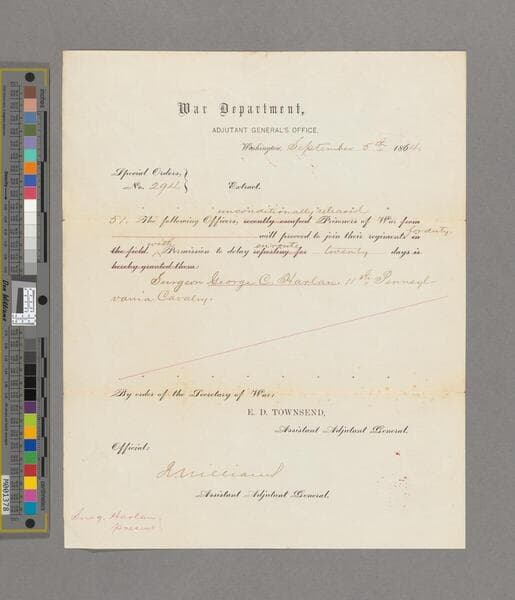 War Department,
ADJUTANT GENERAL'S OFFICE,
Washington, September 5th 1864.
Special Orders,
No. 294
Extract.
unconditionally released
51. The following Officers, recently escaped Prisoners of War from
for duty.
will proceed to join their regiments in
with en route
the field. Permission to delay reporting for twenty days is
hereby granted them:
Surgeon George C. Harlan, 11th Pennsyl-
vania Cavalry.
By order of the Secretary of War:
E. D. TOWNSEND,
Assistant Adjutant General.
Official:
Assistant Adjutant General.
Surg. Harlan,
present
M001378
inches
centimeters